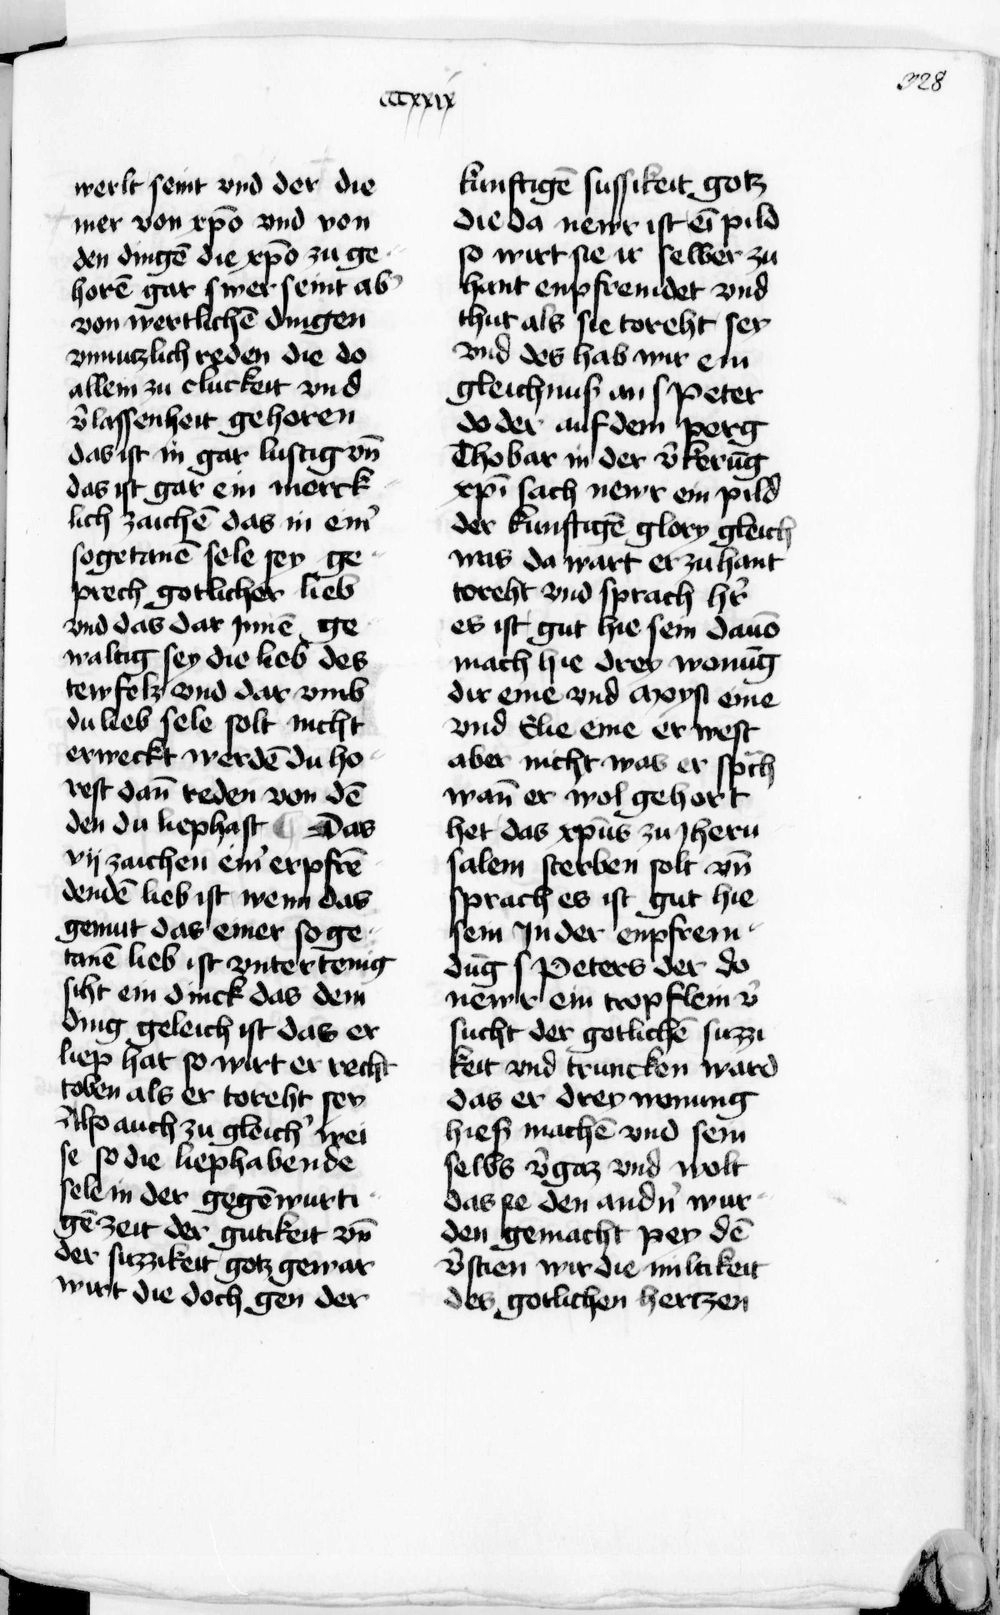 328
cccxxix
werlt seint vnd der die
mer von xp̄o vnd von
den dingē die xp̄o zu ge
horē gar swer seint ab̾
von wertlichē dingen
vnnutzlich reden die do
allein zu cluckeit vnd
v̾lassenheit gehoren
das ist in gar lustig vn̄
das ist gar ein merck
lich zaichē das in ein̾
sogetanē sele sey ge
prech gotlicher lieb
vnd das dar Jnnē ge
waltig sey die lieb des
tewfels vnd dar vmb
du lieb sele solt nicht
erweckt werdē du ho
rest dan̄ reden von dē
den du liephast ¶ Das
vij zaichen ein̾ erpfrē
dendē lieb ist wenn das
gemut das einer so ge
tanē lieb ist vntertenig
siht ein dinck das dem
ding geleich ist das er
liep hat so wirt er recht
toben als er toreht sey
Also auch zu gleich̾ wei
se so die liephabende
sele in der gegēwurti
gē zeit der gutikeit vn̄
der suzzikeit gotz gewar
wirt die doch gen der
kunftigē sussikeit gotz
die da newr ist ei̅ pild
so wirt sie ir selber zu
hant enpfremdet vnd
thut als sie toreht sey
vnd des hab wir ein
gleichnuß an s Peter
do der auf dem perg
Thobar in der v̾kerūg
xpī sach newr ein pild
der kunftigē glory gleich
was da wart er zuhant
toreht vnd sprach hr̾
es ist gut hie sein dauō
mach hie drey wonūg
dir eine vnd Moysi eine
vnd Elie eine er west
aber nicht was er sp̄ch
wan̄ er wol gehort
het das xp̄us zu Jheru
salem sterben solt vn̄
sprach es ist gut hie
sein In der enpfrem
dūg s Peters der do
newr ein tropflein v̾
sucht der gotlichē suzzi
keit vnd truncken ward
das er drey wonung
hieß machē vnd sein
selbs v̾gaz vnd wolt
das sie den andn̾ wur
den gemacht pey dē
v̾stien wir die miltikeit
des gotlichen hertzen